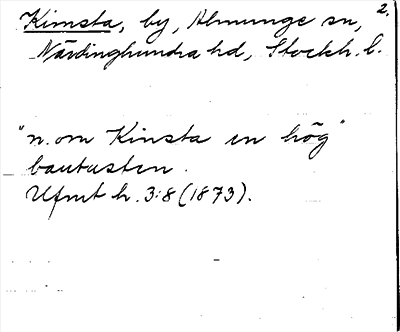 Kimsta, by, Almunge sn, 2.
Närdinghundra hd, Stockh. l.
"n. om Kinsta en hög"
bautasten.
Ufmt h. 3:8 (1873).